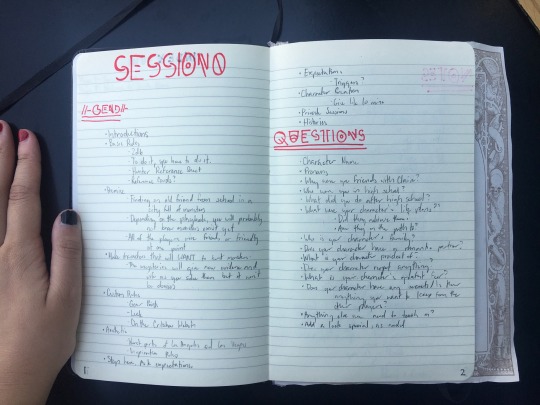 SESSION 0
//-GEND//-
• Introductions
• Basic Rules
- 2d6
- To do it, you have to do it.
- Hunter Reference Sheet
- Reference Cards?
• Premise
- Finding an old friend from school in a
city full of monsters
- Depending on the playbooks, you will probably
not know monsters exist yet
- All of the players were friends or friendly
at one point
• Make characters that will WANT to hunt monsters
- The mysteries will
you solve them but it won't
be
• Custom Rules
- Gear
- Luck
- On the
• Aesthetic
- Worst parts of Los Angeles and Las Vegas
- Inspiration
• Steps
expectations
1
• Expectations
- Triggers?
• Character Creation
- Give
• Private Sessions
• Histories
QUESTIONS
• Character Name
• Pronouns
• Why were you friends with Claire?
• Who were you in high school?
• What did you do after high school?
• What were your character's "life plans"?
• Did they achieve them
• Are they on the path to?
• Who is your character's family?
• Does your character have a romantic partner?
• What is your character product of?
• Does your character regret anything
• What is your character's greatest
• Does your character have any secrets? Is there
anything you want to keep from the
other players?
• Anything else we need to touch on?
• Add a look special as needed
2